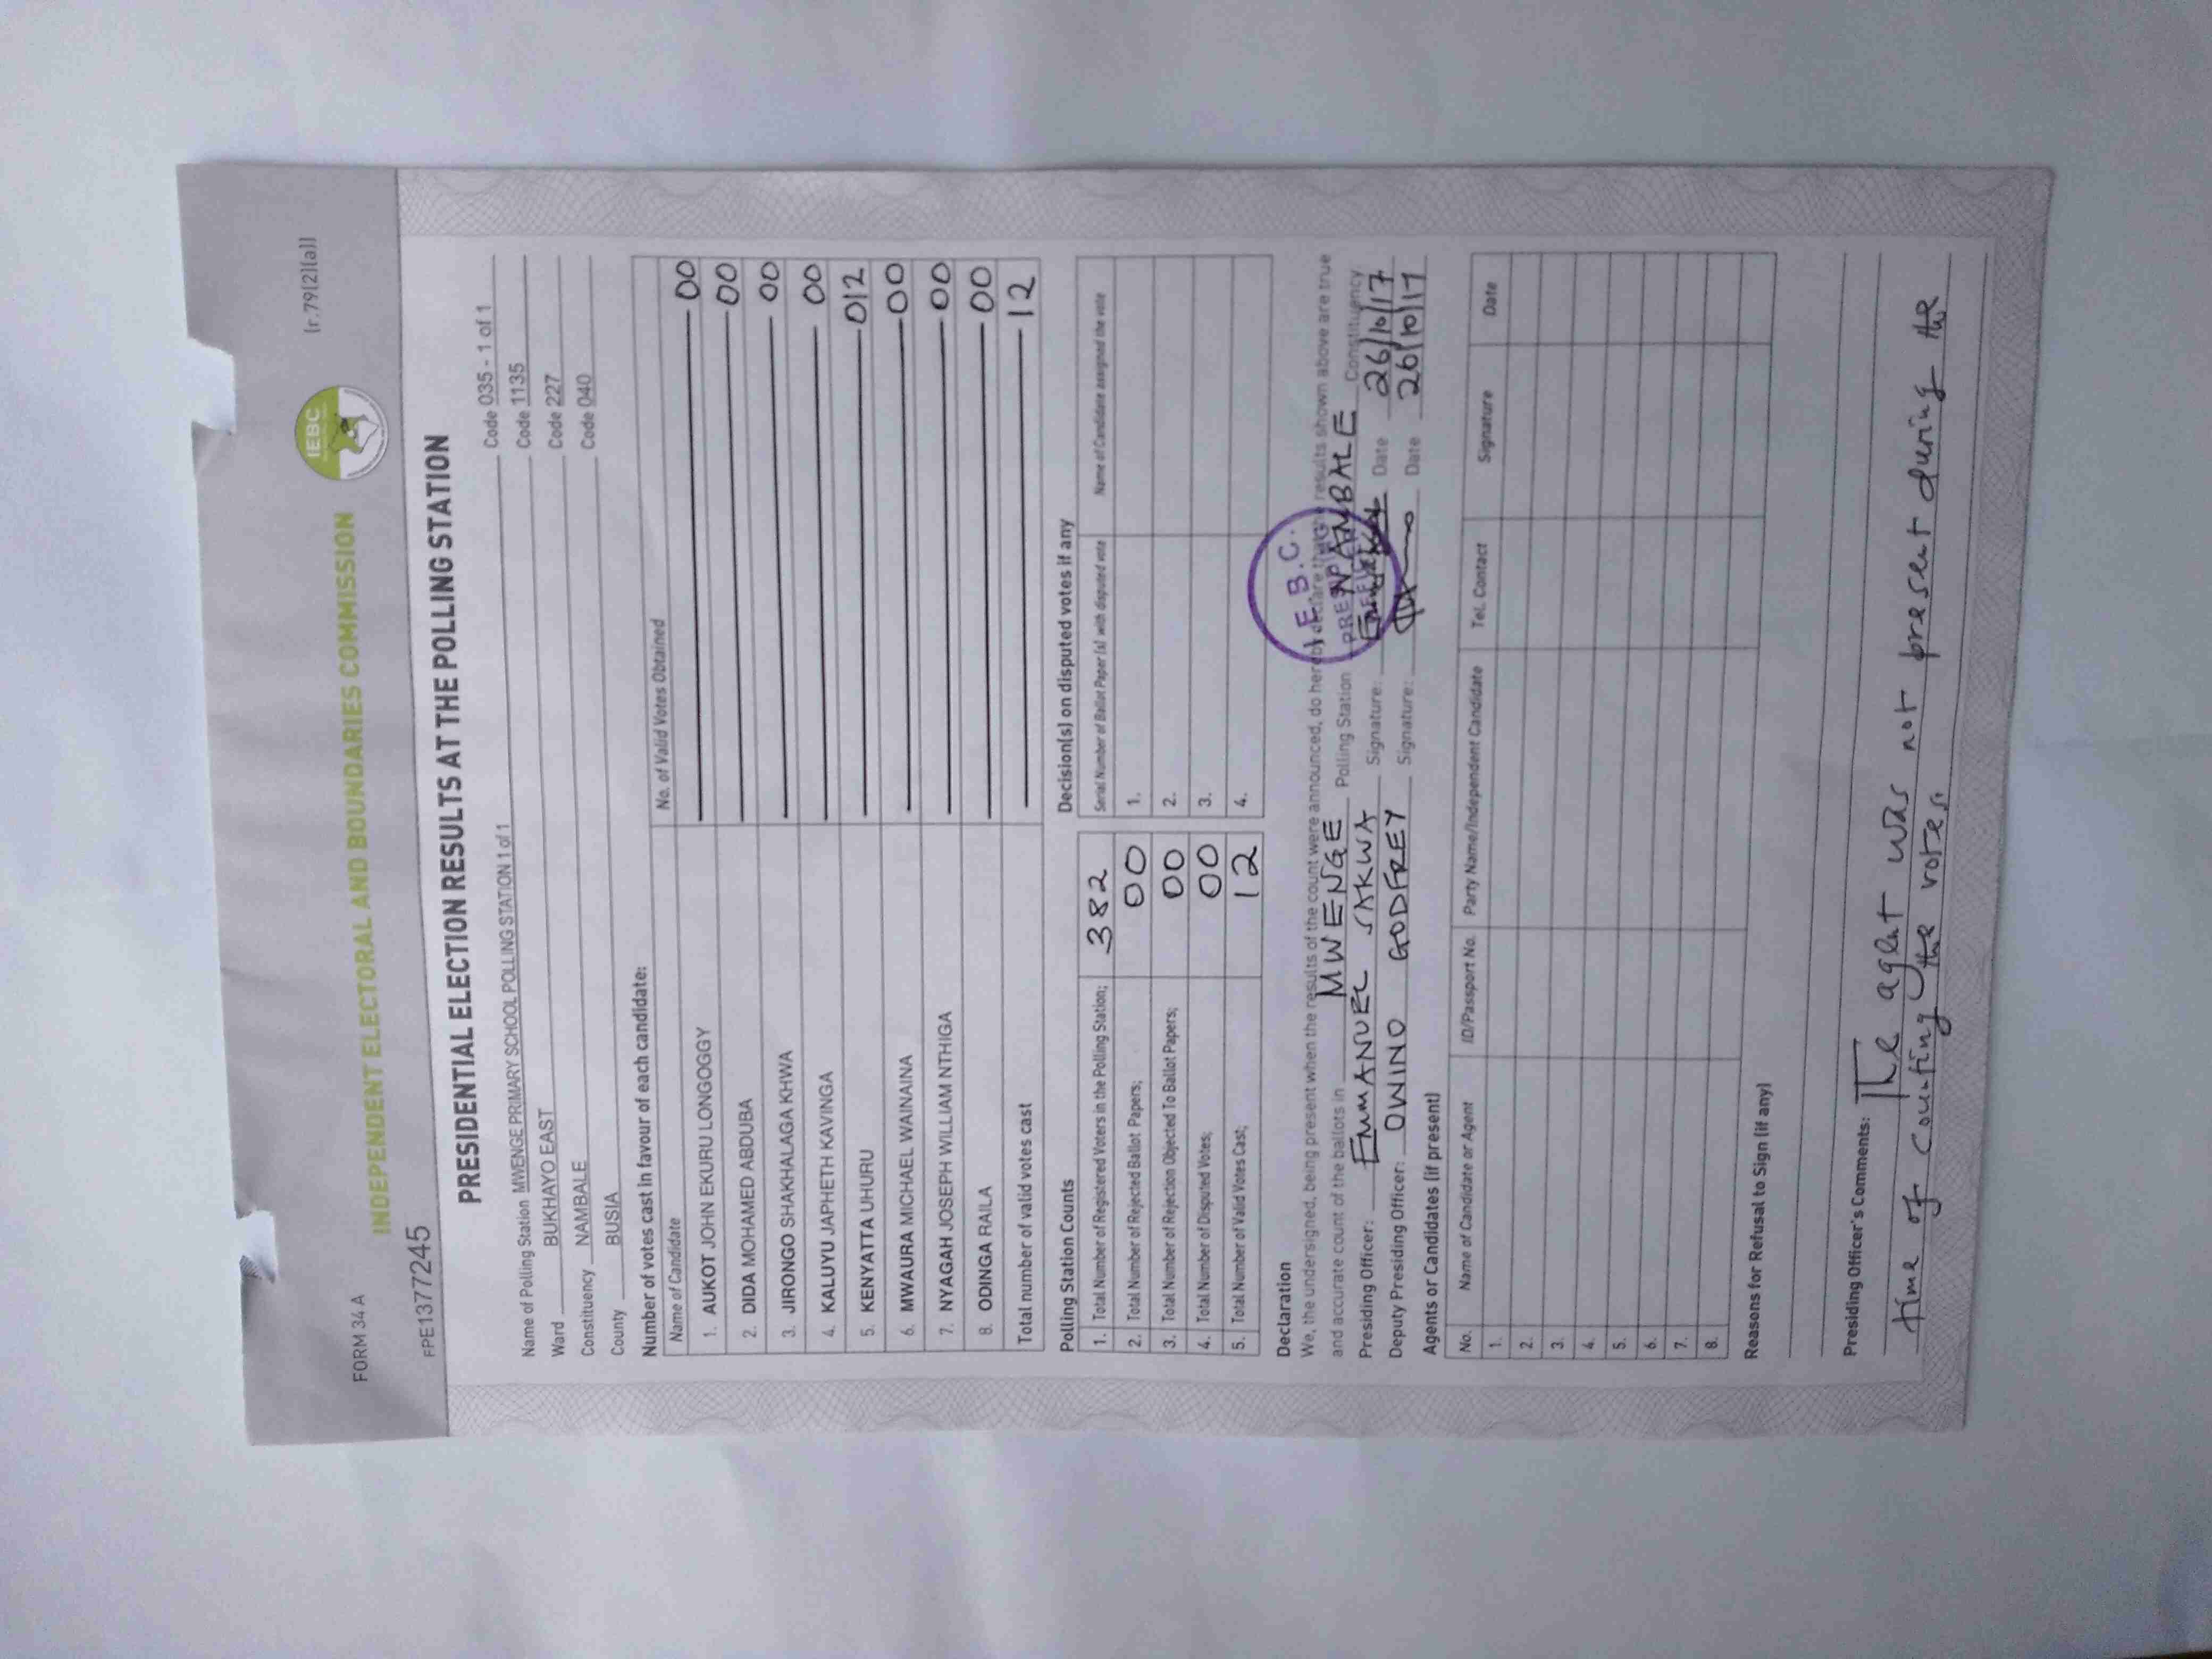 FORM 34 A
(r.79(2)(a))
IEBC
INDEPENDENT ELECTORAL AND BOUNDARIES COMMISSION
FPE1377245
PRESIDENTIAL ELECTION RESULTS AT THE POLLING STATION
Name of Polling Station MWENGE PRIMARY SCHOOL POLLING STATION 1 of 1 Code 035 - 1 of 1
Ward BUKHAYO EAST Code 1135
Constituency NAMBALE Code 227
County BUSIA Code 040
Number of votes cast in favour of each candidate:
Name of Candidate No. of Valid Votes Obtained
1. AUKOT JOHN EKURU LONGOGGY 00
2. DIDA MOHAMED ABDUBA 00
3. JIRONGO SHAKHALAGA KHWA 00
4. KALUYU JAPHETH KAVINGA 00
5. KENYATTA UHURU 012
6. MWAURA MICHAEL WAINAINA 00
7. NYAGAH JOSEPH WILLIAM NTHIGA 00
8. ODINGA RAILA 00
Total number of valid votes cast 12
Polling Station Counts
1. Total Number of Registered Voters in the Polling Station; 382
2. Total Number of Rejected Ballot Papers; 00
3. Total Number of Rejection Objected To Ballot Papers; 00
4. Total Number of Disputed Votes; 00
5. Total Number of Valid Votes Cast; 12
Decision(s) on disputed votes if any
Serial Number of Ballot Paper (s) with disputed vote Name of Candidate assigned the vote
1.
2.
3.
4.
Declaration
We, the undersigned, being present when the results of the count were announced, do hereby declare that the results shown above are true
and accurate count of the ballots in MWENGE Polling Station NAMBALE Constituency
Presiding Officer: EMMANUEL SAKWA Signature: Date 26/10/17
Deputy Presiding Officer: OWINO GODFREY Signature: Date 26/10/17
I.E.B.C.
Agents or Candidates (if present)
No. Name of Candidate or Agent ID/Passport No. Party Name/Independent Candidate Tel. Contact Signature Date
1.
2.
3.
4.
5.
6.
7.
8.
Reasons for Refusal to Sign (if any)
Presiding Officer's Comments: The agent was not present during the
time of counting the votes.